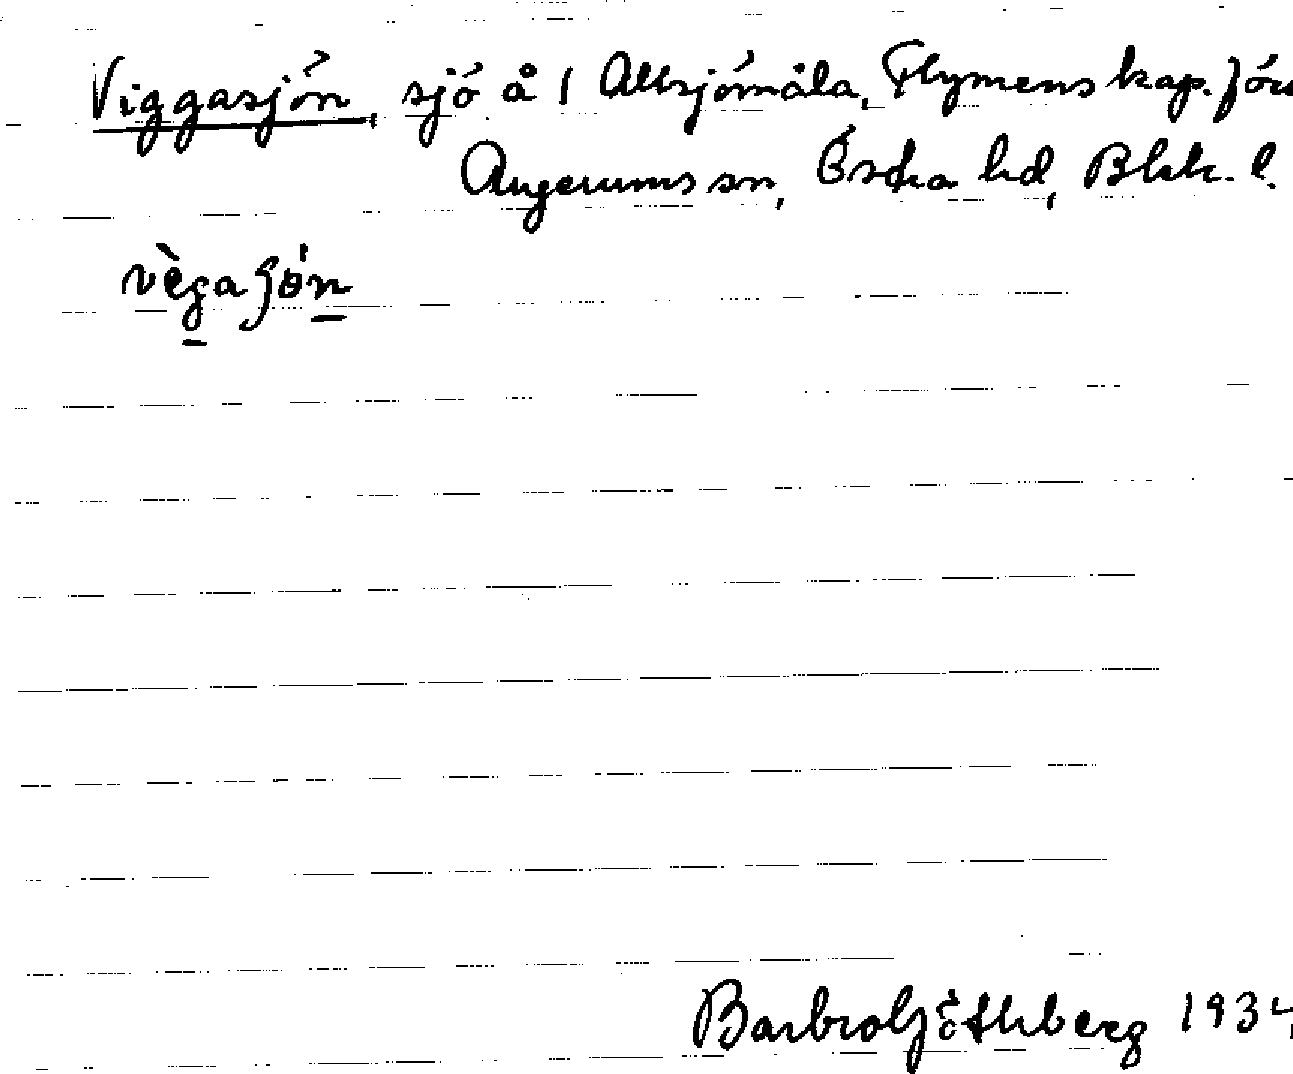 Viggasjön, sjö å 1 Allsjömåla, Flymens kap. förs
Augerums sn, Östra hd, Blek. l.
vègaʃön
Barbro Göthberg 1934